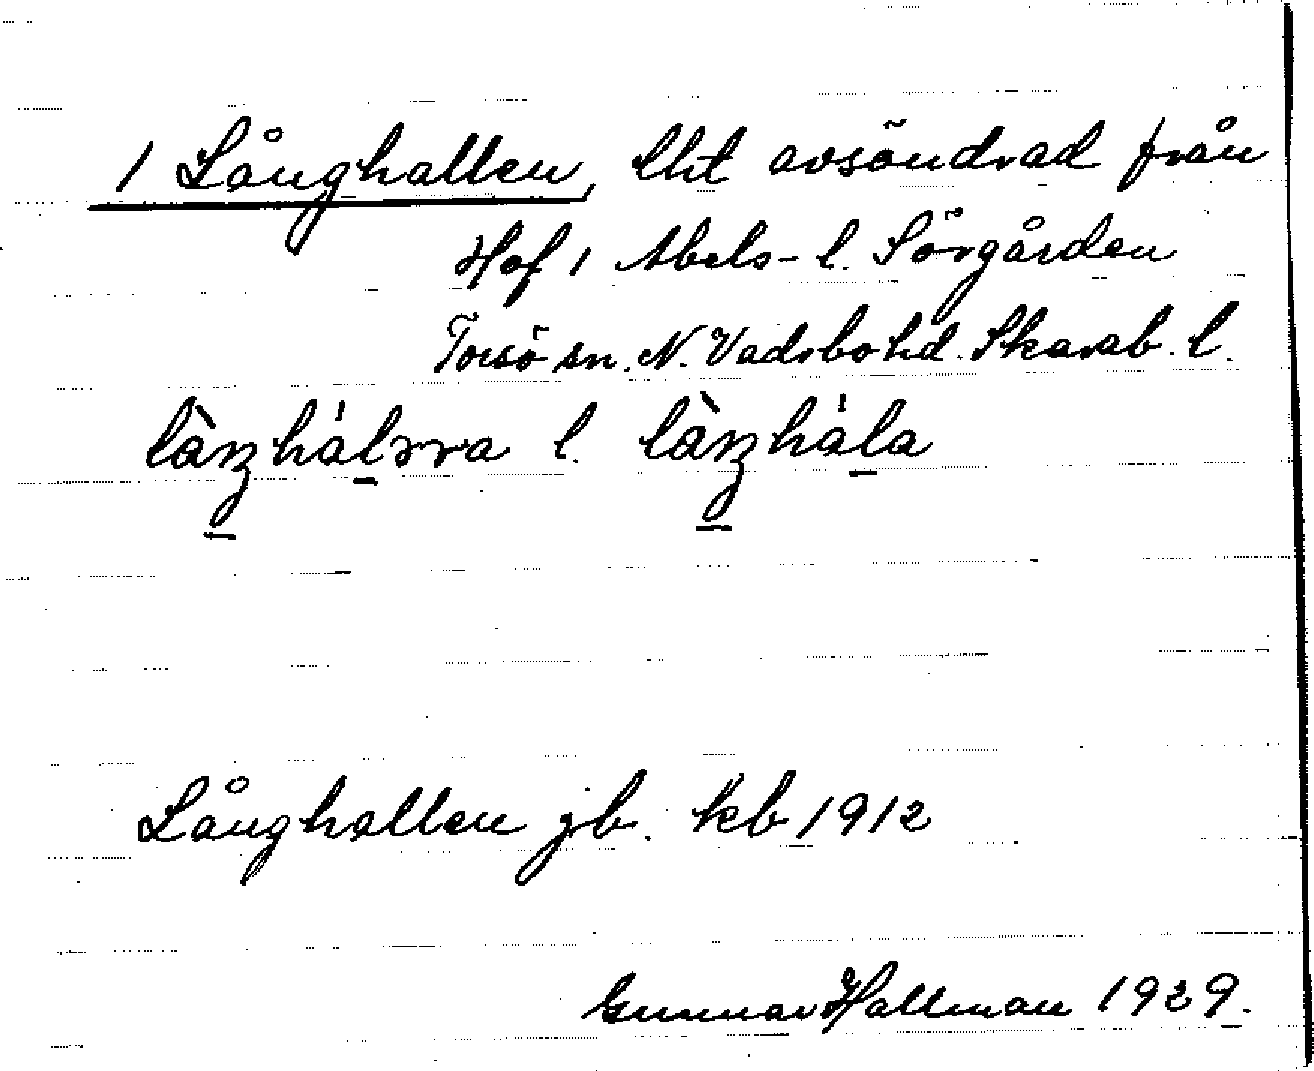 1 Långhallen, lht avsöndrad från
Hof 1 Abels- l. Sörgården
Torsö sn. N. Vadsbo hd. Skarab. l.
l.
Långhallen jb. kb 1912
Gunnar Hallman 1929.